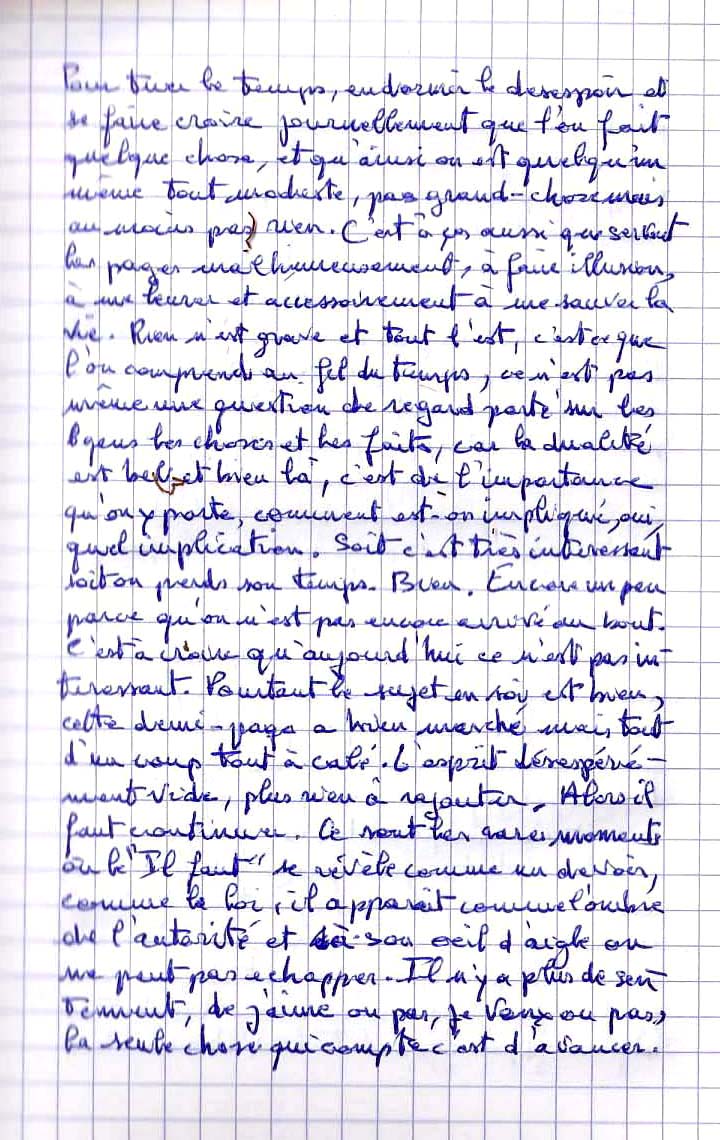 Pour tuer le temps, endormir le desespoir et
se faire croire journellement que l'on fait
quelque chose, et qu'ainsi on est quelqu'un
même tout modeste, pas grand-chose mais
au moins pas rien. C'est à ça aussi que servent
les pages malheureusement, à faire illusion,
à me leurrer et accessoirement à me sauver la
vie. Rien n'est grave et tout l'est, c'est ce que
l'on comprend au fil du temps, ce n'est pas
même une question de regard porté sur les
gens les choses et les faits, car la dualité
est bel et bien là, c'est de l'importance
qu'on y porte, comment est-on impliqué, oui,
quel implication. Soit c'est très interessant
soit on perds son temps. Bien. Encore un peu
parce qu'on n'est pas encore arrivé au bout.
C'est à croire qu'aujourd'hui ce n'est pas in-
teressant. Pourtant le sujet en soi est bien,
cette demi-page a bien marché mais tout
d'un coup tout à calé. L'esprit désespéré-
ment vide, plus rien à rajouter. Alors il
faut continuer. Ce sont les rares moments
où le "Il faut" se révèle comme un devoir,
comme la loi, il apparait comme l'ombre
de l'autorité et à son oeil d'aigle on
ne peut pas echapper. Il n'y a plus de sen
timent, de j'aime ou pas, je veux ou pas,
la seule chose qui compte c'est d'avancer.